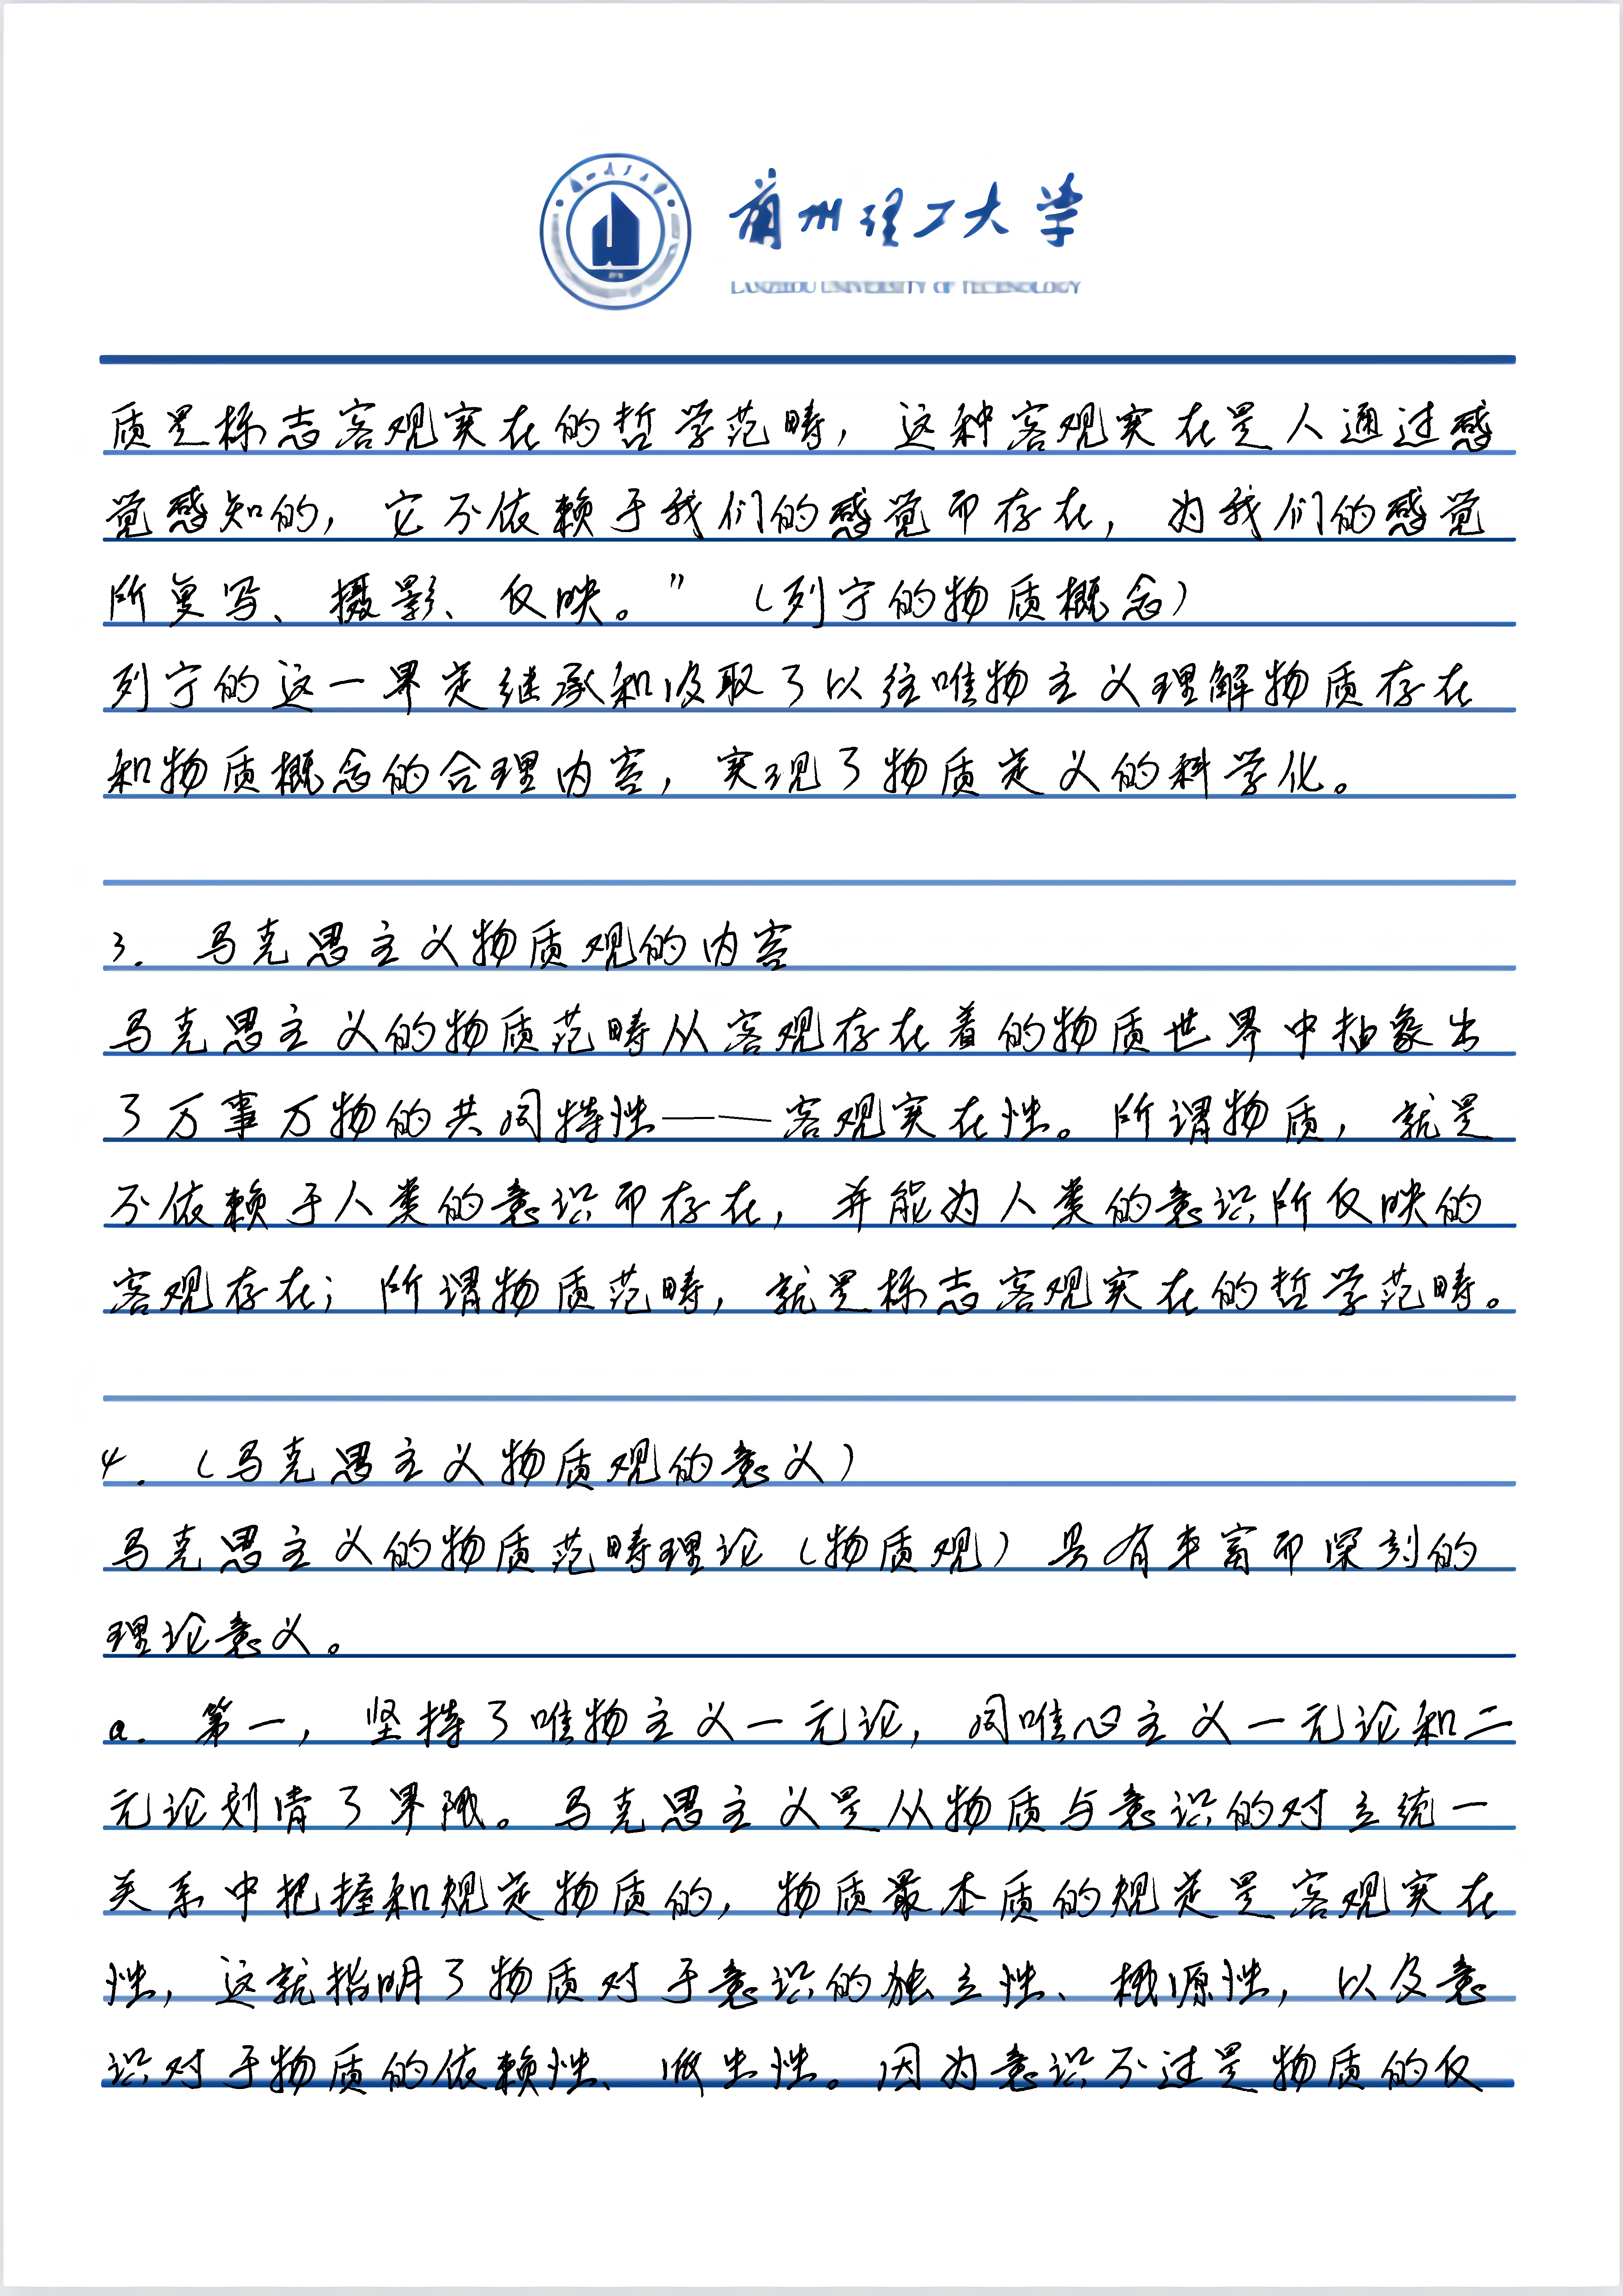 蘭州理工大学
LANZHOU UNIVERSITY OF TECHNOLOGY
质是标志客观实在的哲学范畴，这种客观实在是人通过感
觉感知的，它不依赖于我们的感觉而存在，为我们的感觉
所复写、摄影、反映。”（列宁的物质概念）
列宁的这一界定继承和汲取了以往唯物主义理解物质存在
和物质概念的合理内容，实现了物质定义的科学化。
3. 马克思主义物质观的内容
马克思主义的物质范畴从客观存在着的物质世界中抽象出
了万事万物的共同特性——客观实在性。所谓物质，就是
不依赖于人类的意识而存在，并能为人类的意识所反映的
客观存在；所谓物质范畴，就是标志客观实在的哲学范畴。
4.（马克思主义物质观的意义）
马克思主义的物质范畴理论（物质观）具有丰富而深刻的
理论意义。
a. 第一，坚持了唯物主义一元论，同唯心主义一元论和二
元论划清了界限。马克思主义是从物质与意识的对立统一
关系中把握和规定物质的，物质最本质的规定是客观实在
性，这就指明了物质对于意识的独立性、根源性，以及意
识对于物质的依赖性、派生性。因为意识不过是物质的反